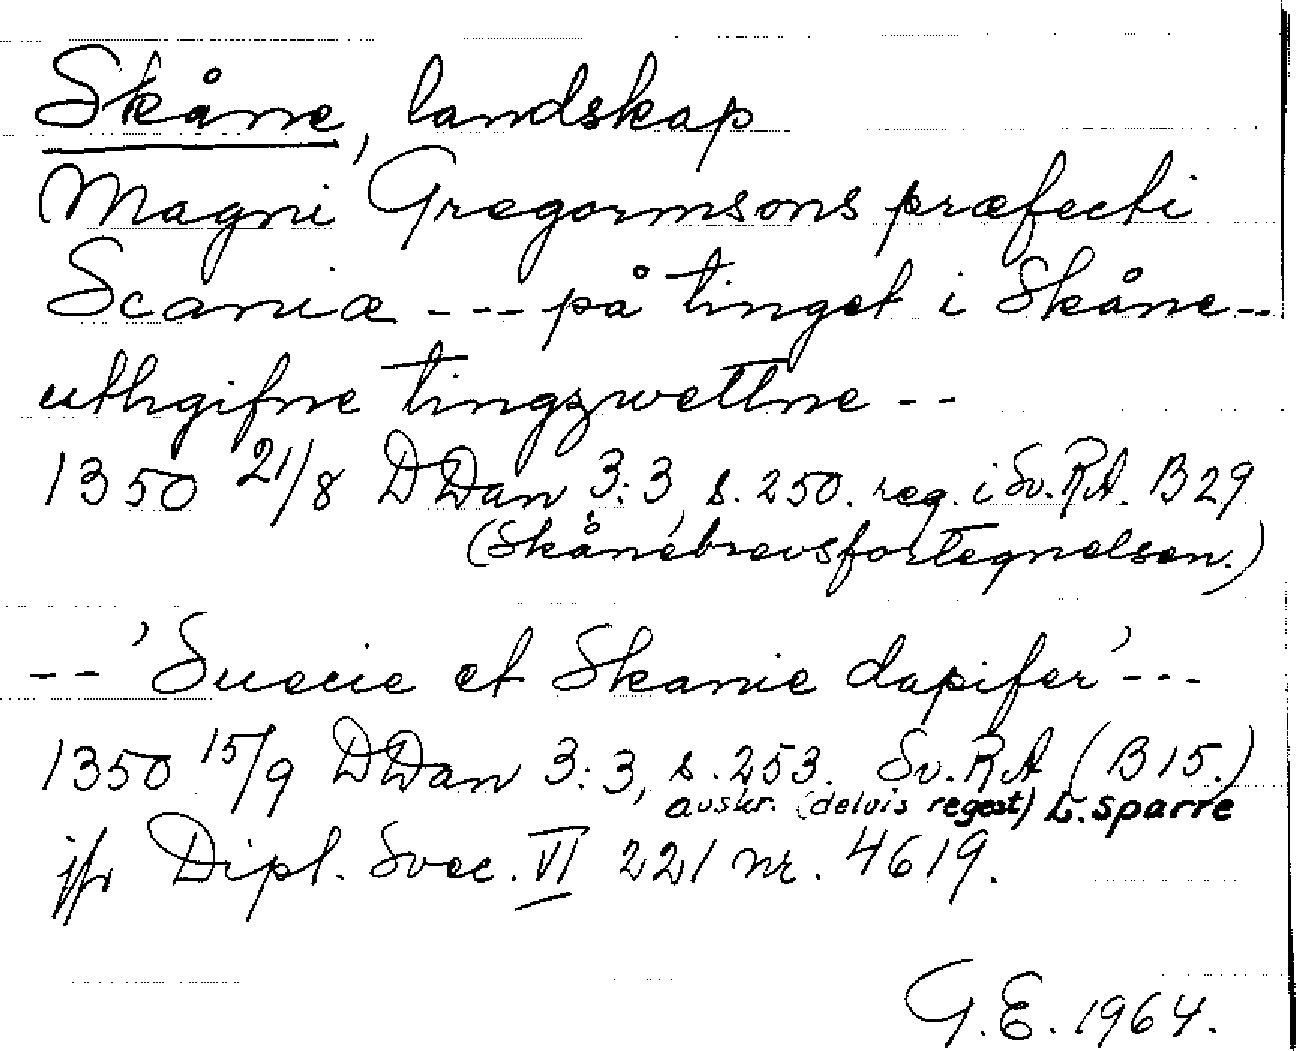 Skåne, landskap
Magni Gregormsons præfecti
Scaniæ --- på tinget i Skåne--
uthgifne tingzwettne --
1350 21/8 DDan 3:3, s. 250. reg. i Sv. RA. B29
(Skånebrevsfortegnelsen.)
-- 'Suecie et Skanie dapifer' ---
1350 15/9 DDan 3:3, s. 253. Sv. RA (B15.)
avskr. (delvis regest) L. Sparre
jfr Dipl. Svec. VI 221 nr. 4619.
G.E. 1964.